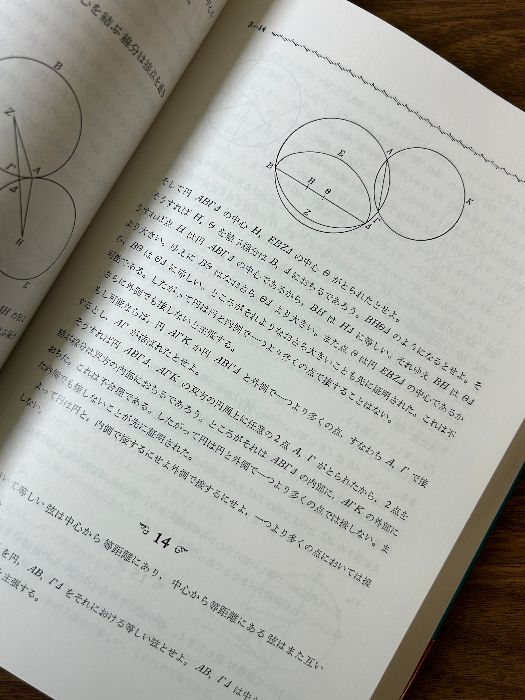 心を結ぶ線分は接点を通る
B
Z
Γ
A
Δ
H
3—14
E
A
B
H
θ
K
Z
Δ
そして円 ABΓΔ の中心 H, EBZΔ の中心 θ がとられたとせよ。
そうすれば H, θ を結ぶ線分は B, Δ におちるであろう。BHθΔ のようになるとせよ。そ
うすれば点 H は円 ABΓΔ の中心であるから, BH は HΔ に等しい。それゆえ BH は θΔ
より大きい。ゆえに Bθ はなおさら θΔ より大きい。また点 θ は円 EBZΔ の中心であるか
ら, Bθ は θΔ に等しい。ところがそれよりなおさら大きいことも先に証明された。これは不
可能である。したがって円は円と内側で一つより多くの点で接することはない。
さらに外側でも接しないと主張する。
もし可能ならば, 円 AΓK が円 ABΓΔ と外側で一つより多くの点, すなわち A, Γ で接
するとし, AΓ が結ばれたとせよ。
そうすれば円 ABΓΔ, AΓK の双方の円周上に任意の2点 A, Γ がとられたから, 2点を
結ぶ線分は双方の内部におちるであろう。ところがそれは ABΓΔ の内部に, AΓK の外部に
おちた。これは不合理である。したがって円は円と外側で一つより多くの点では接しない。ま
た内側でも接しないことが先に証明された。
よって円は円と, 内側で接するにせよ外側で接するにせよ, 一つより多くの点においては接
しない。
14
おいて等しい弦は中心から等距離にあり, 中心から等距離にある弦はまた互い
を円, AB, ΓΔ をそれにおける等しい弦とせよ。AB, ΓΔ は中
主張する。